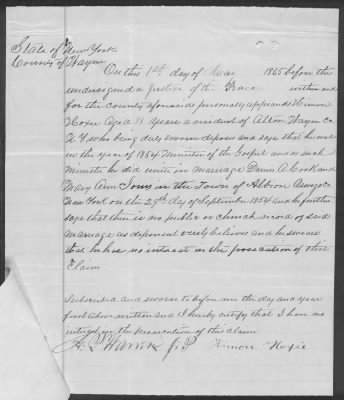 State of New York
County of Wayne
On this 1st day of May 1865 before the
undersigned a Justice of the Peace within and
for the county aforesaid personally appeared Himon
Hoxie Aged 58 years a resident of Alton Wayne Co
N.Y. who being duly sworn deposes and says that he was
in the year of 1854 Minister of the Gospel and as such
Minister he did unite in marriage Darius A. Cook and
Mary Ann Jones in the Town of Albion Oswego Co
New York on the 29th day of September 1854 and he further
says that there is no public or church record of said
marriage as deponent verily believes and he swears
that he has no interest in the prosecution of this
Claim
Subscribed and sworn to before me the day and year
first above written and I hereby certify that I have no
interest in the prosecution of this claim
Warren J.P. Himon Hoxie